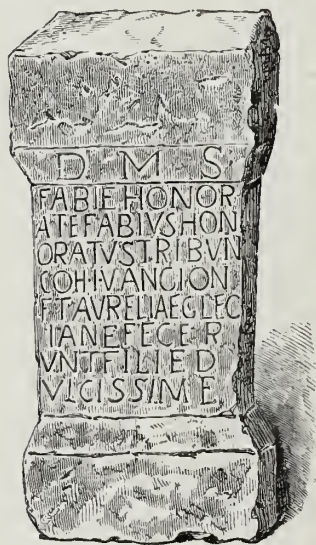 D M S
FABIEHONOR
ATEFABIVSHON
ORATVSTRIBVN
COH·I·VANGION
ETAVRELIAEGLEC
IANEFECER
VNTFILIED
VLCISSIME